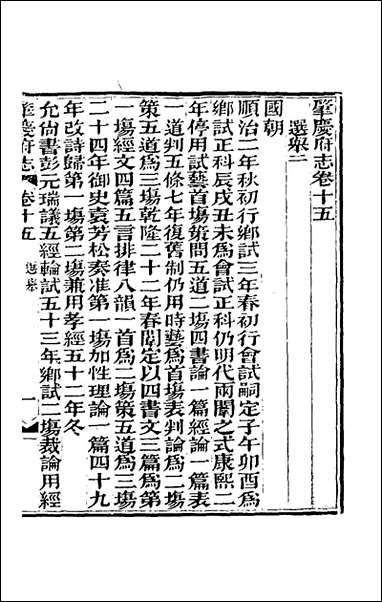 肇慶府志卷十五
選舉二
國朝
順治二年秋初行鄉試三年春初行會試嗣定子午卯酉爲
鄉試正科辰戌丑未爲會試正科仍明代兩闈之式康熙二
年停用試藝首塲策問五道二塲四書論一篇經論一篇表
一道判五條七年復舊制仍用時藝爲首塲表判論爲二塲
策五道爲三塲乾隆二十二年春闈定以四書文三篇爲第
一塲經文四篇五言排律八韻一首爲二塲策五道爲三塲
二十四年御史袁芳松奏准第一塲加性理論一篇四十九
年改詩歸第一塲第二塲兼用孝經五十二年冬
允尚書彭元瑞議五經輪試五十三年鄉試二塲裁論用經
肇慶府志
卷十五
選舉
一